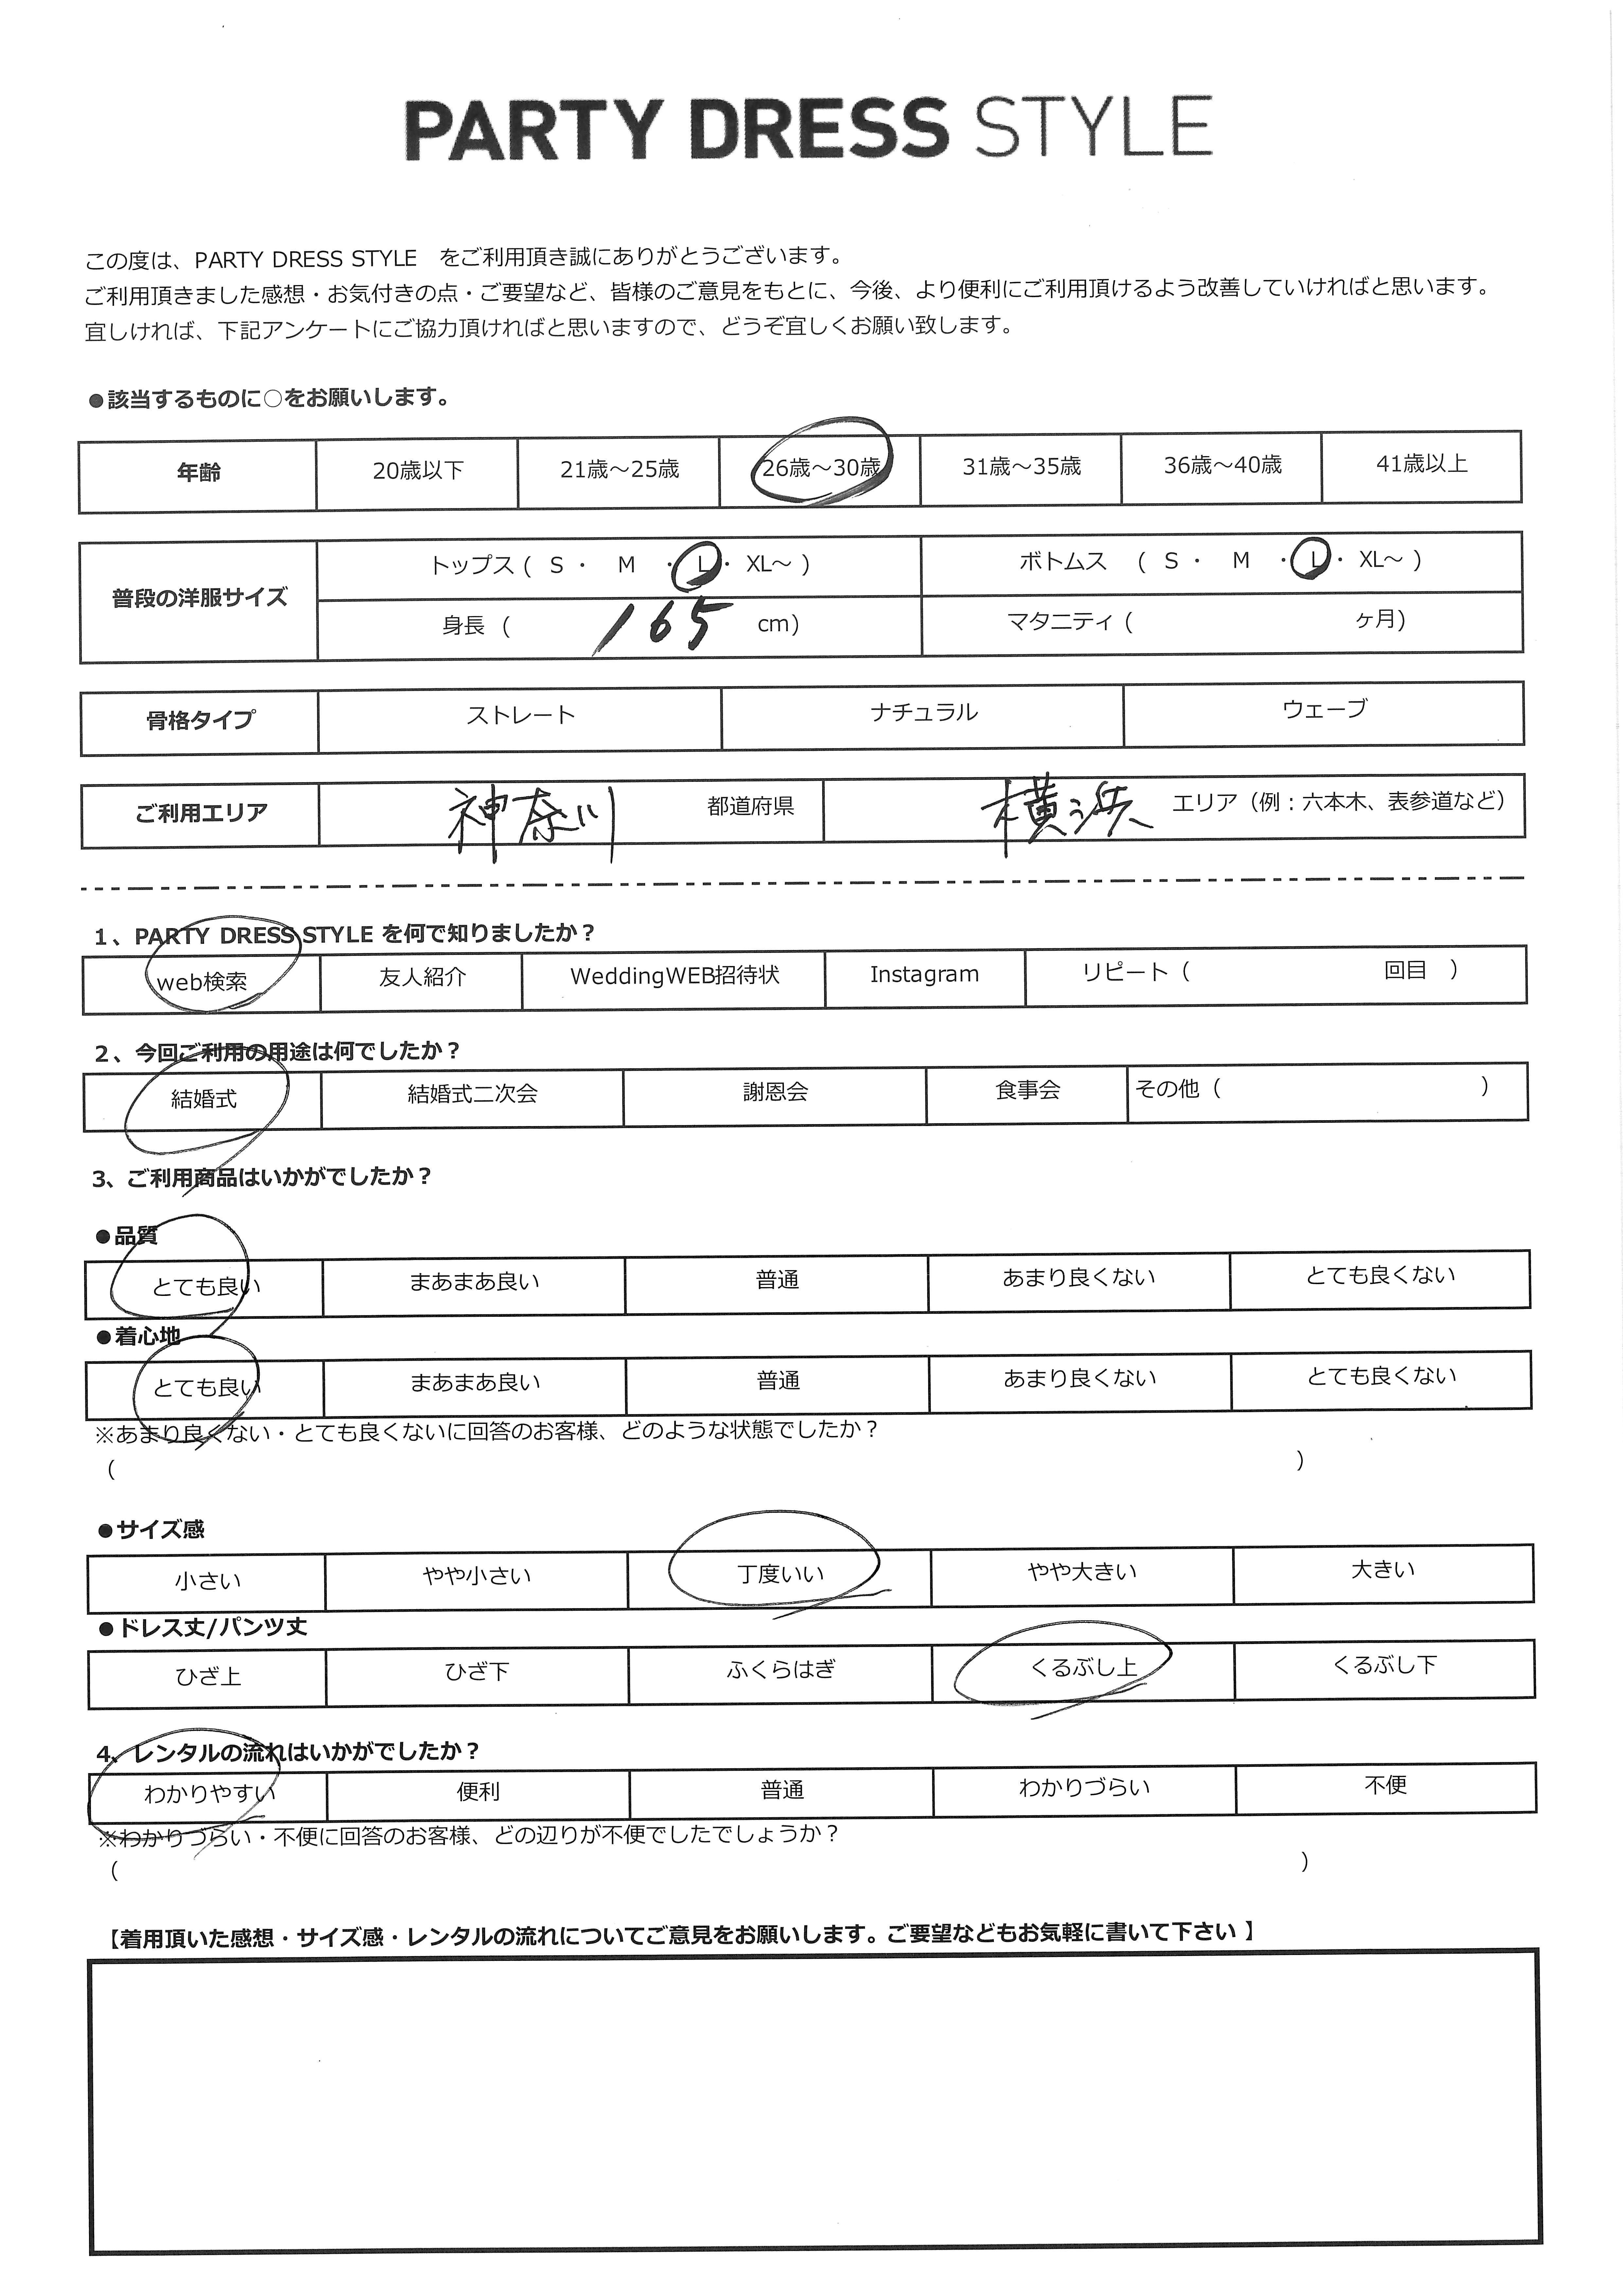 PARTY DRESS STYLE
この度は、PARTY DRESS STYLE をご利用頂き誠にありがとうございます。
ご利用頂きました感想・お気付きの点・ご要望など、皆様のご意見をもとに、今後、より便利にご利用頂けるよう改善していければと思います。
宜しければ、下記アンケートにご協力頂ければと思いますので、どうぞ宜しくお願い致します。
●該当するものに○をお願いします。
年齢 20歳以下 21歳～25歳 26歳～30歳 31歳～35歳 36歳～40歳 41歳以上
普段の洋服サイズ トップス ( S ・ M ・ L ・ XL～ ) ボトムス ( S ・ M ・ L ・ XL～ )
身長 ( 165 cm) マタニティ ( ヶ月)
骨格タイプ ストレート ナチュラル ウェーブ
ご利用エリア 神奈川 都道府県 横浜 エリア（例：六本木、表参道など）
1、PARTY DRESS STYLE を何で知りましたか？
web検索 友人紹介 WeddingWEB招待状 Instagram リピート（ 回目 ）
2、今回ご利用の用途は何でしたか？
結婚式 結婚式二次会 謝恩会 食事会 その他（ ）
3、ご利用商品はいかがでしたか？
●品質
とても良い まあまあ良い 普通 あまり良くない とても良くない
●着心地
とても良い まあまあ良い 普通 あまり良くない とても良くない
※あまり良くない・とても良くないに回答のお客様、どのような状態でしたか？
（ ）
●サイズ感
小さい やや小さい 丁度いい やや大きい 大きい
●ドレス丈/パンツ丈
ひざ上 ひざ下 ふくらはぎ くるぶし上 くるぶし下
4、レンタルの流れはいかがでしたか？
わかりやすい 便利 普通 わかりづらい 不便
※わかりづらい・不便に回答のお客様、どの辺りが不便でしたでしょうか？
（ ）
【着用頂いた感想・サイズ感・レンタルの流れについてご意見をお願いします。ご要望などもお気軽に書いて下さい 】